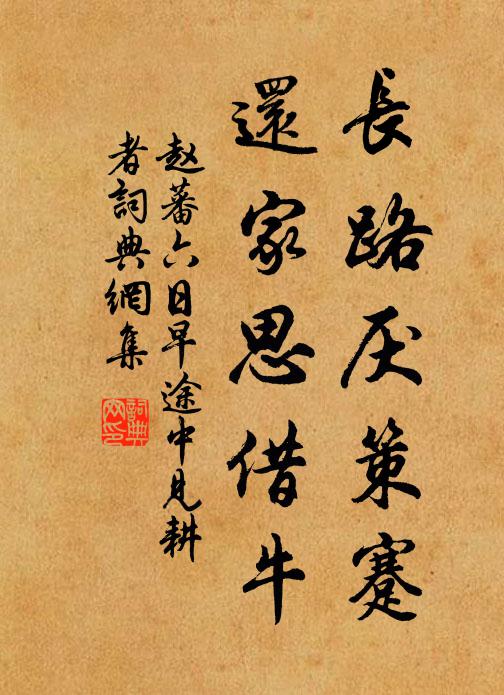 長路厌策蹇
還家思借牛
赵蕃六日早途中見耕
者詞典網集
詞典網印